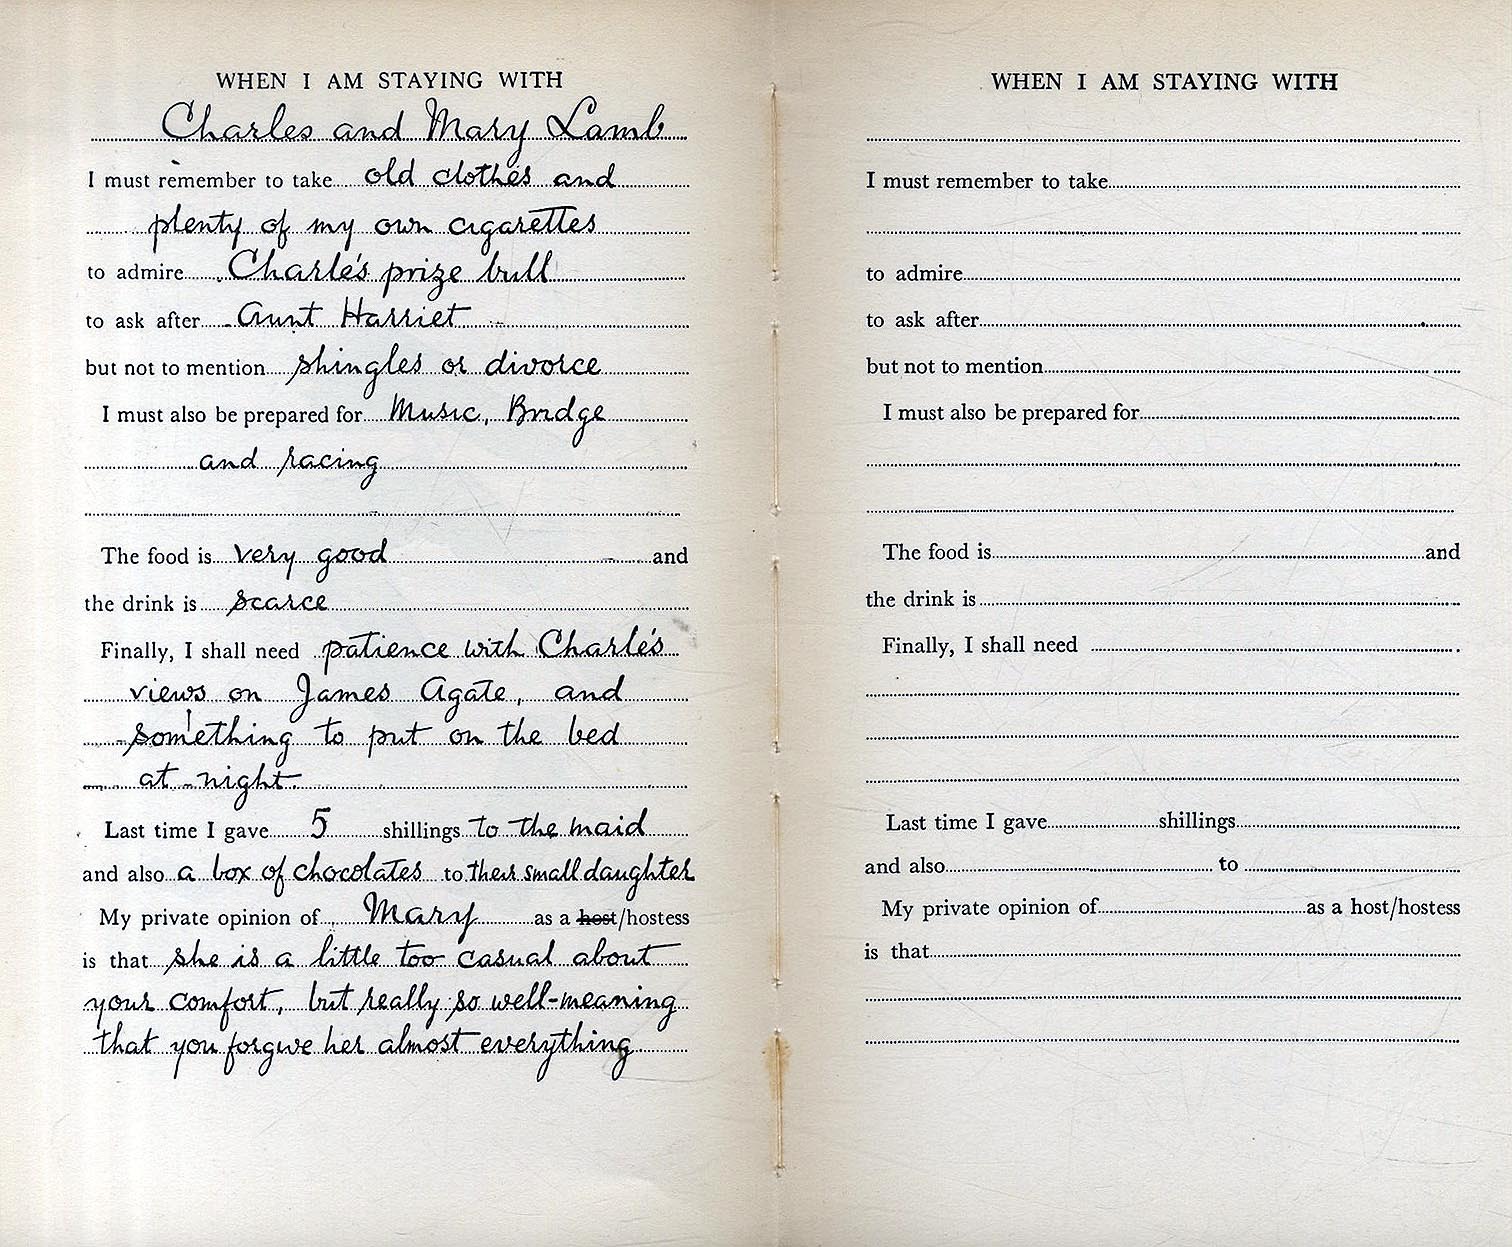 WHEN I AM STAYING WITH
Charles and Mary Lamb
I must remember to take old clothes and
plenty of my own cigarettes
to admire Charle's prize bull
to ask after Aunt Harriet
but not to mention shingles or divorce
I must also be prepared for Music, Bridge
and racing
The food is very good and
the drink is scarce
Finally, I shall need patience with Charle's
views on James Agate, and
something to put on the bed
at night.
Last time I gave 5 shillings to the maid
and also a box of chocolates to their small daughter
My private opinion of Mary as a host/hostess
is that she is a little too casual about
your comfort, but really so well-meaning
that you forgive her almost everything
WHEN I AM STAYING WITH
I must remember to take
to admire
to ask after
but not to mention
I must also be prepared for
The food is and
the drink is
Finally, I shall need
Last time I gave shillings
and also to
My private opinion of as a host/hostess
is that